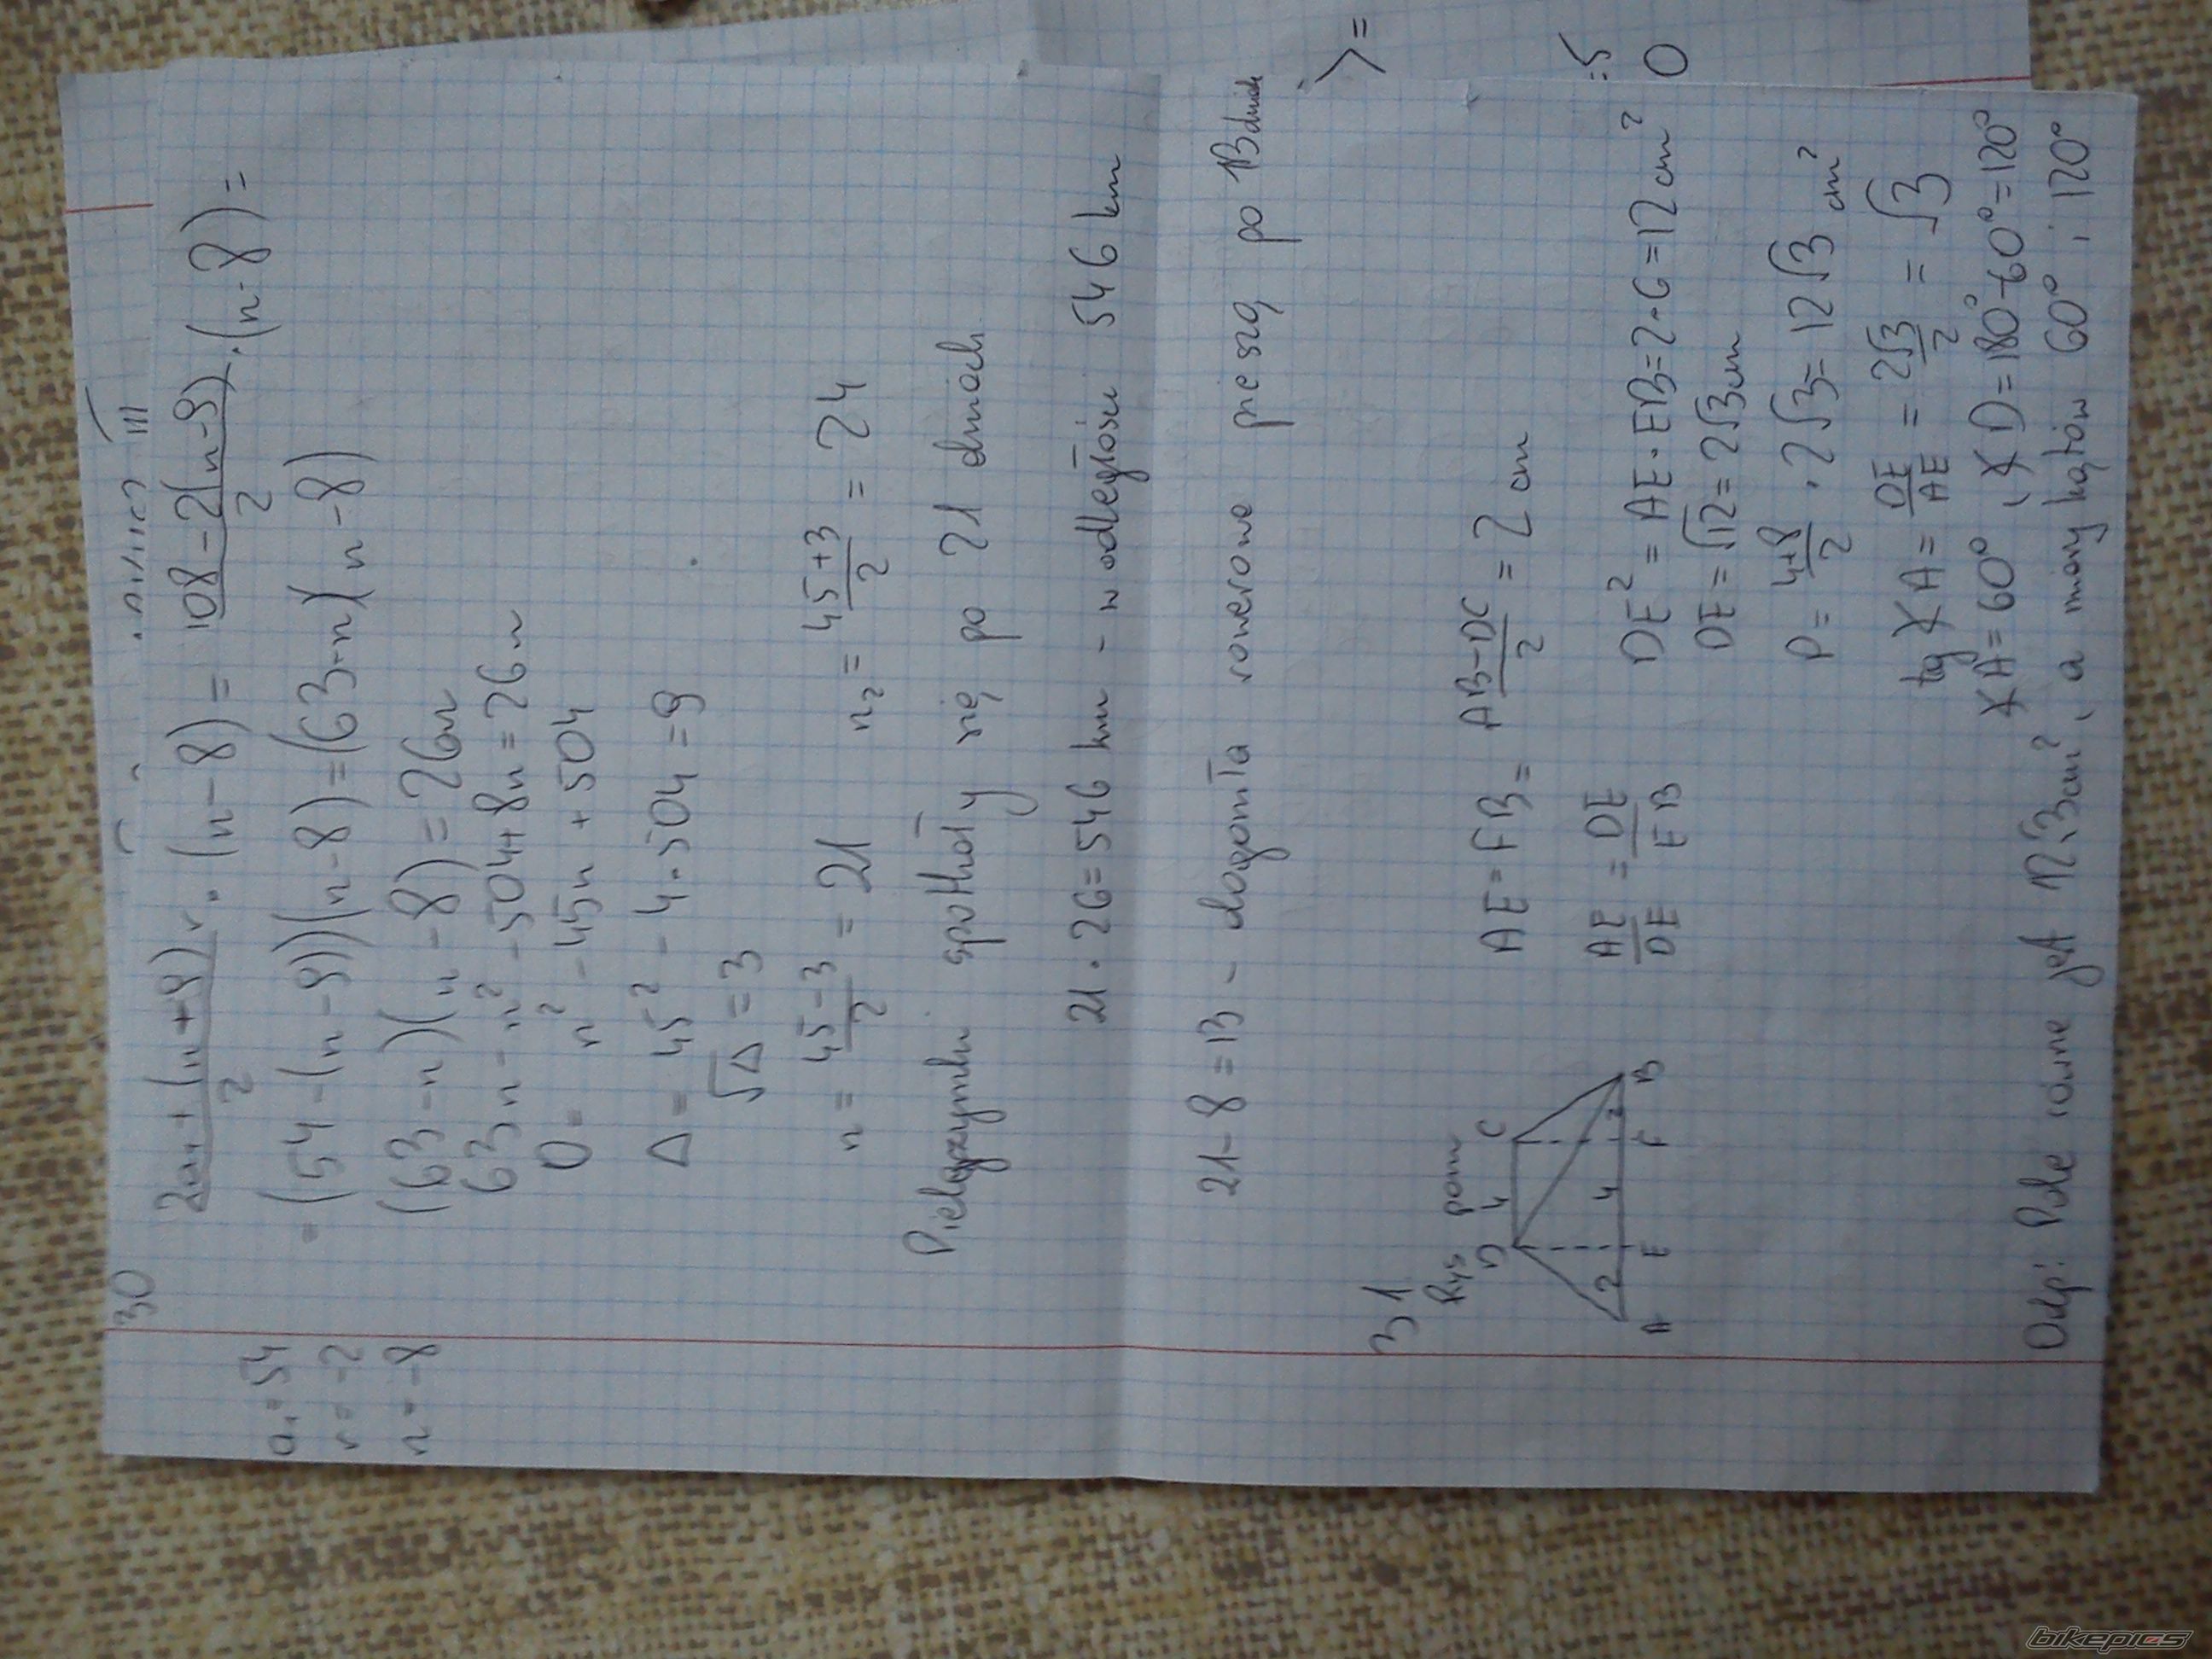 30
a₁ = 54
r = -2
n = -8
2a₁ + (n + 9)r / 2 · (n - 8) = 108 - 2(n - 9) / 2 · (n - 8) =
= (54 - (n - 9))(n - 8) = (63 - n)(n - 8)
(63 - n)(n - 8) = 26n
63n - n² - 504 + 8n = 26n
0 = n² - 45n + 504
Δ = 45² - 4 · 504 = 9
√Δ = 3
n = 45 - 3 / 2 = 21 n₂ = 45 + 3 / 2 = 24
Pielgrzymki spotkały się po 21 dniach
21 · 26 = 546 km - w odległości 546 km
21 - 8 = 13 - dogoniła rowerowa pieszą po 13 dniach
31
Rys pom
D 4 C
A 2 E 4 F 2 B
AE = FB = AB - DC / 2 = 2 cm
AE / DE = DE / EB DE² = AE · EB = 2 · 6 = 12 cm²
DE = √12 = 2√3 cm
P = 4 + 8 / 2 · 2√3 = 12√3 cm²
tg ∡A = DE / AE = 2√3 / 2 = √3
∡A = 60°, ∡D = 180° - 60° = 120°
Odp: Pole równe jest 12√3 cm², a miary kątów 60° i 120°
>=
:5
0
bikepics